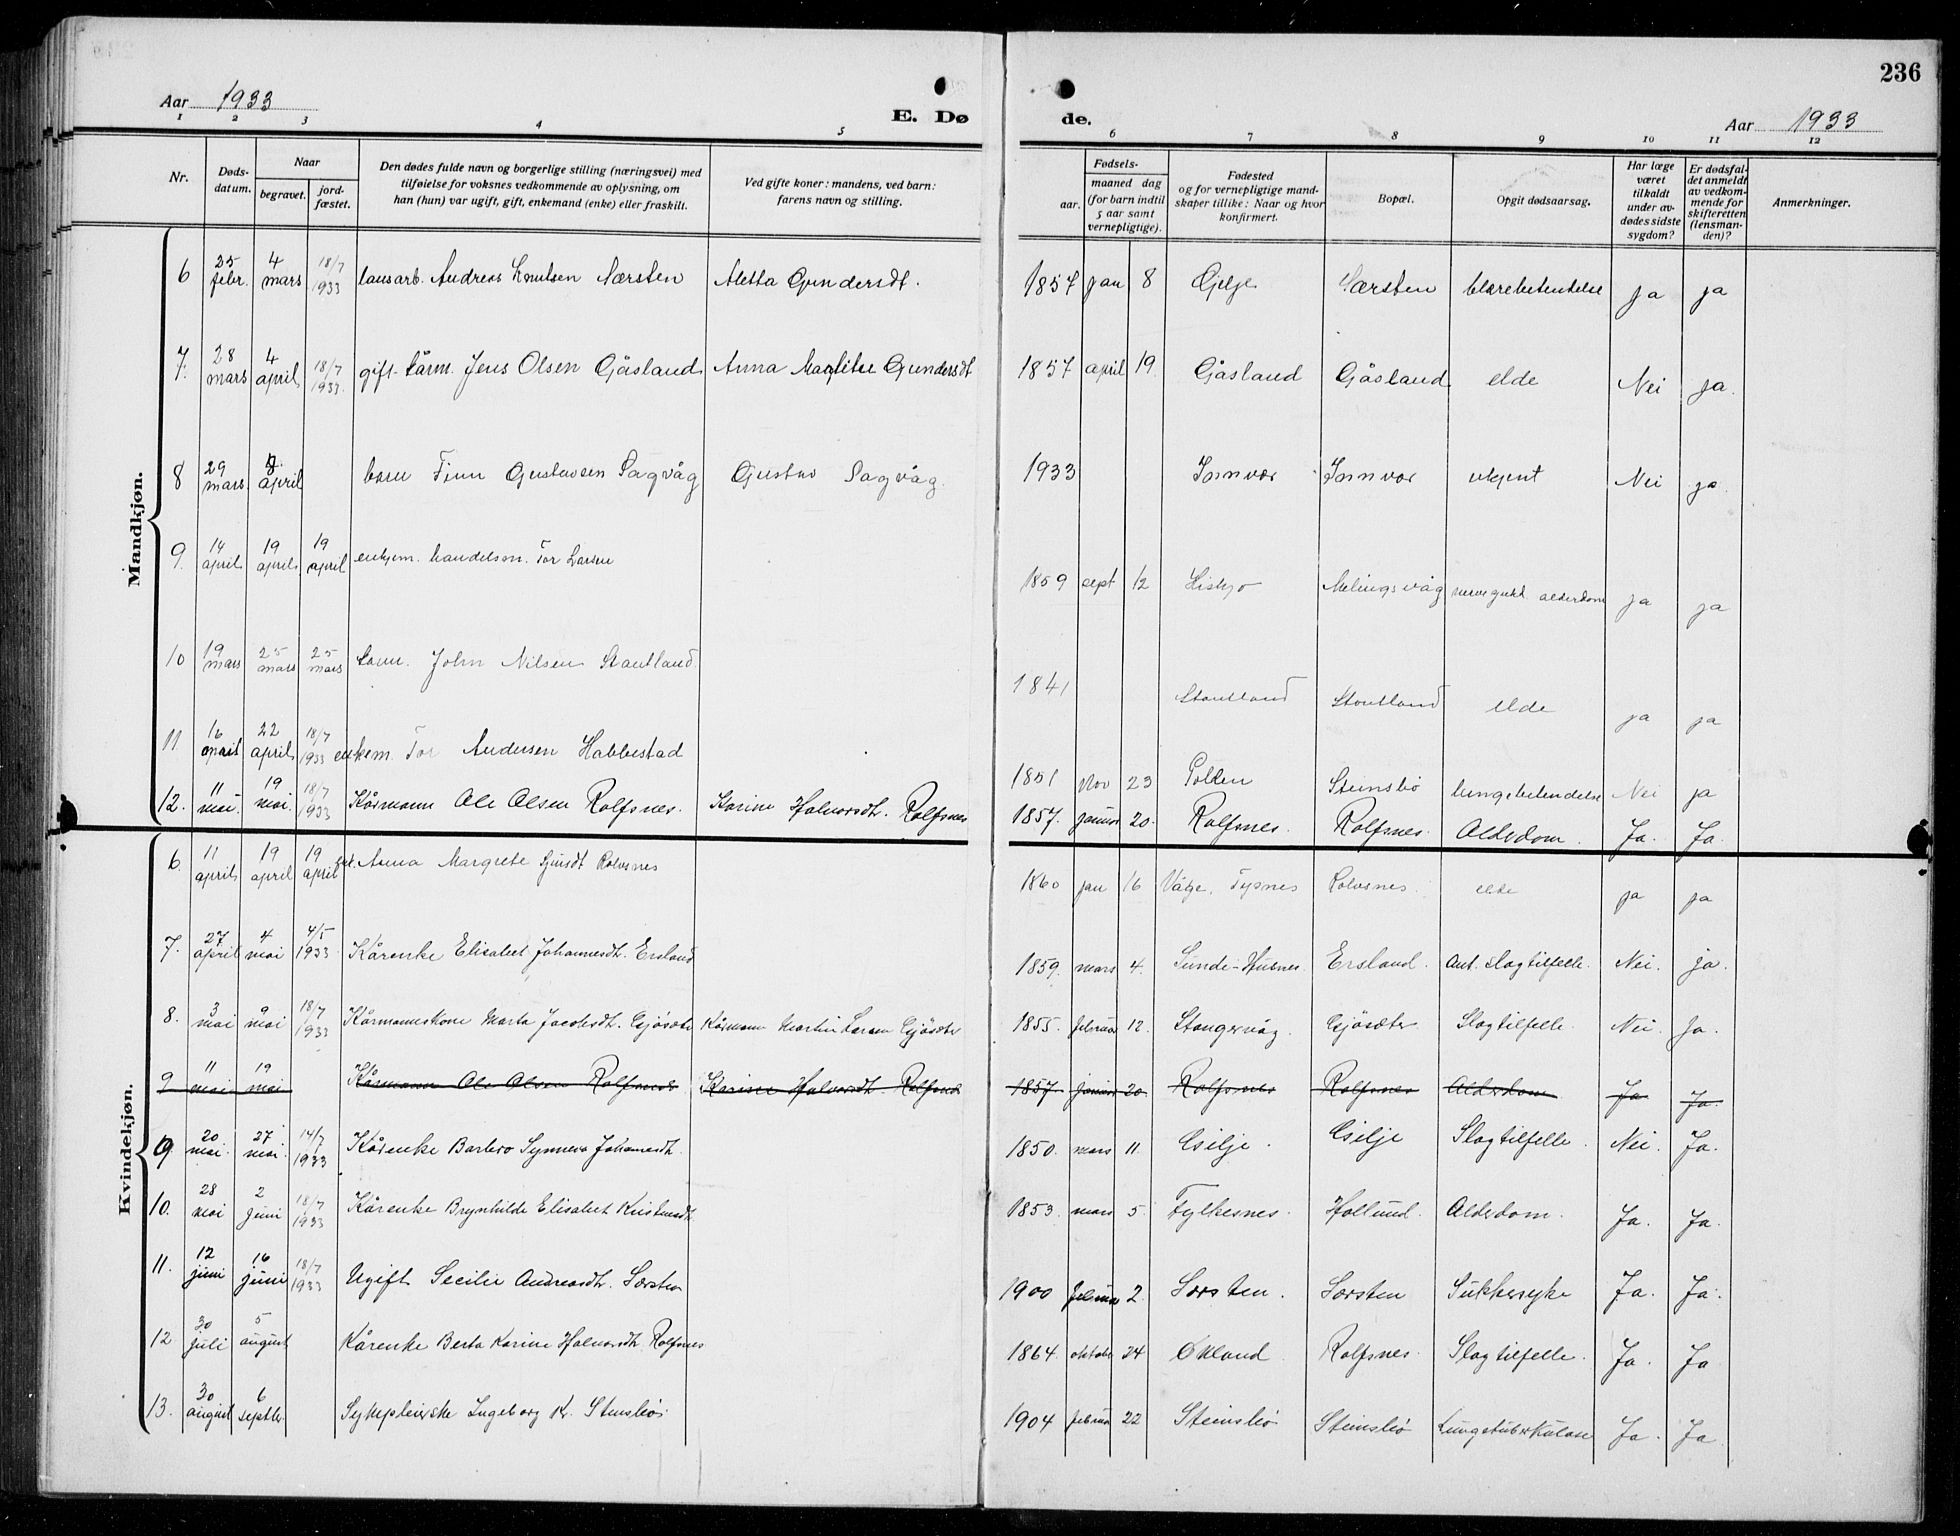 236
Aar 1933
E. Dø
de.
Aar 1933
1 2 3 4 5 6 7 8 9 10 11 12
Nr.
Døds-
datum.
Naar
begravet.
jord-
fæstet.
Den dødes fulde navn og borgerlige stilling (næringsvei) med
tilføielse for voksnes vedkommende av oplysning, om
han (hun) var ugift, gift, enkemand (enke) eller fraskilt.
Ved gifte koner: mandens, ved barn:
farens navn og stilling.
Fødsels-
aar.
maaned dag
(for barn indtil
5 aar samt
vernepligtige).
Fødested
og for vernepligtige mand-
skaper tillike: Naar og hvor
konfirmert.
Bopæl.
Opgit dødsaarsag.
Har læge
været
tilkaldt
under av-
dødes sidste
sygdom?
Er dødsfal-
det anmeldt
av vedkom-
mende for
skifteretten
(lensman-
den)?
Anmerkninger.
Mandkjøn.
6 25 febr. 4 mars 18/7 1933 lausarb. Andreas Knutsen Særsten Aletta Gundersdt. 1857 jan 8 Gjelje Særsten blærebetendelse ja ja
7. 28 mars 4 april 18/7 1933. gift kårm. Jens Olsen Gåsland Anna Gundersdt 1857 april 19. Gåsland Gåsland elde Nei ja.
8 29 mars april barn Finn Gustavsen Sagvåg Gustav Sagvåg. 1933 Innvær Innvær ukjent Nei ja.
9. 14 april 19 april 19 april enkjem. handelsm. Tor Larsen 1859 sept 12 Hiskjo Melingsvåg alderdom ja ja
10 19 mars 25 mars 25 mars kårm. John Nilsen Stautland 1841 Stautland Stautland elde ja ja
11 16 april 22 april 18/7 1933 enkem. Tor Andersen Habbestad 1851 Nov 23 Pollen Steinsbø lungebetendelse Nei ja
12. 11 mai. 19 mai. 18/7 1933 Kårmann Ole Olsen Rolfsnes. Karine Halvorsdt. Rolfsnes 1857. januar 20. Rolfsnes. Rolfsnes. Alderdom. Ja. Ja.
Kvindekjøn.
6. 11 april 19 april 19 april Anna Margrete Rolvsnes 1860 jan 16 Våge, Tysnes Rolvsnes. elde ja ja
7. 27 april 4 mai 4/5 1933 Kårenke Elisabet Johannesdt. Ersland 1859. mars 4. Sunde-Husnes. Ersland. Ant. slagtilfelle. Nei. ja.
8. 3 mai 9 mai 18/7 1933 Kårmannskone Marta Jacobsdt. Gjøsæter Kårmann Martin Larsen Gjøsæter 1855. februar 12. Stangervåg. Gjøsæter Slagtilfelle. Nei. Ja.
9 11 mai 19 mai Kårmann Ole Olsen Rolfsnes Karine Halvorsdt. Rolfsnes 1857 januar 20 Rolfsnes Rolfsnes Alderdom Ja Ja.
9 20 mai. 27 mai. 14/7 1933 Kårenke Barbro Synneva Johannesdt. 1850. mars 11. Gsilje. Gsilje Slagtilfelle. Nei. Ja.
10. 28 mai 2 juni 18/7 1933 Kårenke Brynhilde Elisabet Knutsdt 1853. mars 5. Fylkesnes. Hollund. Alderdom. Ja. Ja.
11. 12 juni 16 juni 18/7 1933 Ugift Secilie Andreasdt. Særsten 1900 februar 2. Særsten. Særsten Sukkersyke Ja. Ja.
12 30 juli 5 august Kårenke Berta Karine Halvorsdt. Rolfsnes 1864. oktobr 24 Økland Rolfsnes. Slagtilfelle. Ja. Ja
13. 30 august 6 septbr. Sykepleierske Ingeborg Kr. Stensbø. 1904 februar 22 Steinsbø Steinsbø Lungetuberkulose Ja. Ja